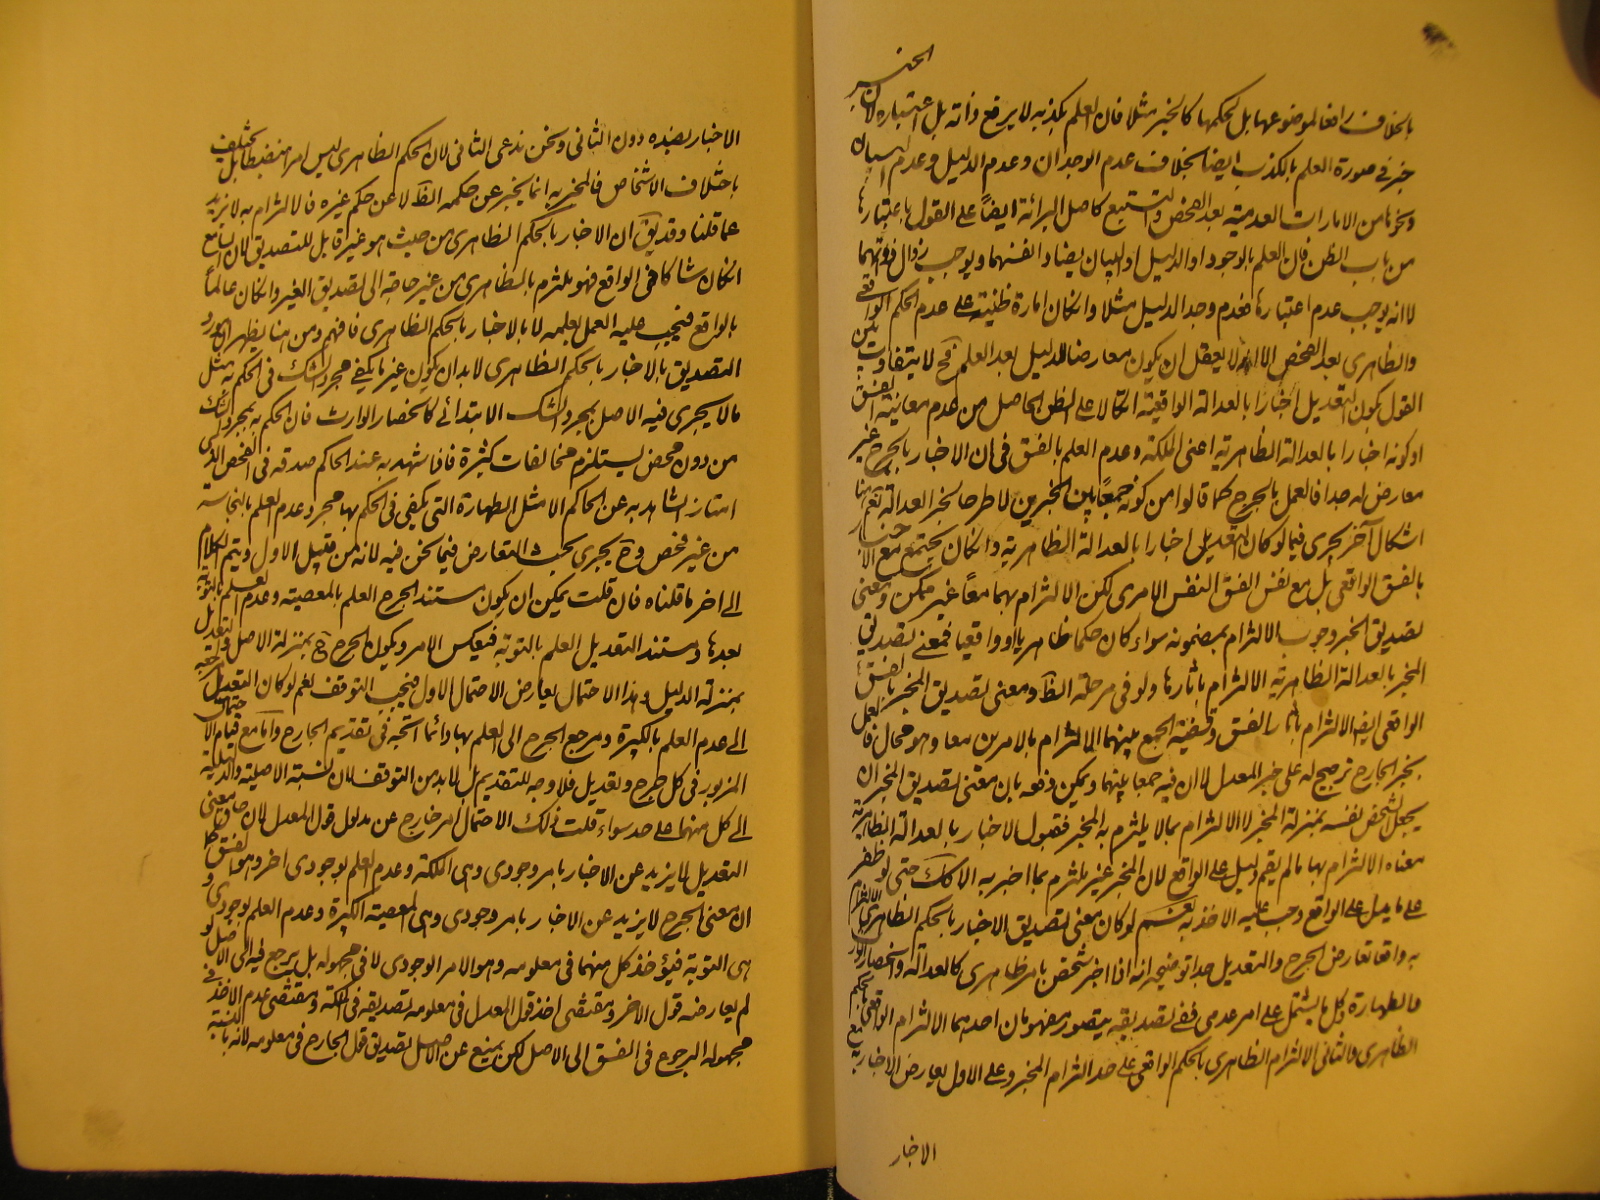 بالخلاف رافعا لموضوعها بل لحكمها كالخبر مثلا فان العلم بكذبه لا يرفع ذاته بل اعتباره لان الخبر
خبر في صورة العلم بالكذب ايضا بخلاف عدم الوجدان وعدم الدليل وعدم البيان
ونحوها من الامارات العدمية بعد الفحص والتتبع كاصل البرائة ايضاً على القول باعتبارها
من باب الظن فان العلم بالوجود او الدليل او البيان يضاد انفسهما ويوجب زوال ذواتهما
لا انه يوجب عدم اعتبارها فعدم وجد الدليل مثلا وان كان امارة ظنية على عدم الحكم الواقعي
والظاهري بعد الفحص الا انه لا يعقل ان يكون معارضا للدليل بعد العلم فح لا يتفاوت بين
القول بكون التعديل اخبارا بالعدالة الواقعية اتكالا على الظن الحاصل من عدم معاينة الفسق
او كونه اخبارا بالعدالة الظاهرية اعني الملكة وعدم العلم بالفسق في ان الاخبار بالجرح غير
معارض له جدا فالعمل بالجرح كما قالوا من كونه جمعاً بين الخبرين لا طرحا لخبر العدالة نعم هنا
اشكال آخر يجري فيما لو كان التعديل اخبارا بالعدالة الظاهرية وان كان يجتمع مع الاخبار
بالفسق الواقعي بل مع نفس الفسق النفس الامري لكن الالتزام بهما معاً غير ممكن ومعنى
تصديق الخبر وجوب الالتزام بمضمونه سواء كان حكما ظاهريا او واقعيا فمعنى تصديق
المخبر بالعدالة الظاهرية الالتزام باثارها ولو في مرحلة الظ ومعنى تصديق المخبر بالفسق
الواقعي ايضا الالتزام باثار الفسق وقضية الجمع بينهما الالتزام بالامرين معا وهو محال فالعمل
بخبر الجارح ترجيح له على خبر المعدل لا ان فيه جمعا بينهما ويمكن دفعه بان معنى تصديق المخبر ان
يجعل الشخص نفسه بمنزلة المخبر لا الالتزام بما لا يلتزم به المخبر فقبول الاخبار بالعدالة الظاهرية
معناه الالتزام بها ما لم يقم دليل على الواقع لان المخبر غير ملتزم بما اخبر به الا كك حتى لو ظفر
على ما يدل على الواقع وجب عليه الاخذ به نعم لو كان معنى تصديق الاخبار بالحكم الظاهري الالتزام
به واقعا تعارض الجرح والتعديل جدا توضيحه انه اذا اخبر شخص بامر ظاهري كالعدالة وانحصار الوارث
والطهارة وكل ما يشتمل على امر عدمي ففي تصديقه يتصور مفهومان احدهما الالتزام الواقعي بالحكم
الظاهري والثاني الالتزام الظاهري بالحكم الواقعي على حد التزام المخبر وعلى الاول يعارض الاخبار به مع
الاخبار
الاخبار بضده دون الثاني ونحن ندعي الثاني لان الحكم الظاهري ليس امرا منضبطا بل يختلف
باختلاف الاشخاص فالمخبر به انما يخبر عن حكمه الظ لا عن حكم غيره فالالتزام به لا يزيد
عما قلنا وقد يق ان الاخبار بالحكم الظاهري من حيث هو غير قابل للتصديق لان السامع
ان كان شاكا في الواقع فهو يلتزم بالظاهري من غير حاجة الى تصديق الغير وان كان عالماً
بالواقع فيجب عليه العمل بعلمه لا بالاخبار بالحكم الظاهري فافهم ومن هنا يظهر ان مورد
التصديق بالاخبار بالحكم الظاهري لا بد ان يكون غير ما يكفي مجرد الشك في الحكم به مثل
ما لا يجري فيه الاصل بمجرد الشك الابتدائي كانحصار الوارث فان الحكم به بمجرد الشك
من دون فحص يستلزم مخالفات كثيرة فاذا شهد به عند الحاكم صدقه في الفحص الذي
امتاز الشاهد به عن الحاكم لا مثل الطهارة التي يكفي في الحكم بها مجرد عدم العلم بالنجاسة
من غير فحص وح يجري بحث التعارض فيما نحن فيه لانه من قبيل الاول ويتم الكلام
الى اخر ما قلناه فان قلت يمكن ان يكون مستند الجرح العلم بالمعصية وعدم العلم بالتوبة
بعدها ومستند التعديل العلم بالتوبة فينعكس الامر ويكون الجرح ح بمنزلة الاصل والتعديل
بمنزلة الدليل وهذا الاحتمال يعارض الاحتمال الاول فيجب التوقف نعم لو كان التعديل مرجعه
الى عدم العلم بالكبيرة ومرجع الجرح الى العلم بها دائما اتجه في تقديم الجارح واما مع قيام الاحتمال
المزبور في كل جرح وتعديل فلا وجه للتقديم بل لا بد من التوقف لان نسبة الاصلية والدليلية
الى كل منهما على حد سواء قلت ذلك الاحتمال امر خارج عن مدلول قول المعدل لان معنى
التعديل لا يزيد عن الاخبار بامر وجودي وهي الملكة وعدم العلم بوجودي اخر وهو الفسق كما
ان معنى الجرح لا يزيد عن الاخبار بامر وجودي وهي المعصية الكبيرة وعدم العلم بوجودي
هي التوبة فيؤخذ كل منهما في معلومه وهو الامر الوجودي لا في مجهوله بل يرجع فيه الى الاصل لو
لم يعارضه قول الاخر ومقتضى اخذ قول المعدل في معلومه تصديقه في الملكة ومقتضى عدم الاخذ في
مجهوله الرجوع في الفسق الى الاصل لكن يمنع عن الاصل تصديق قول الجارح في معلومه لانه بالنسبة